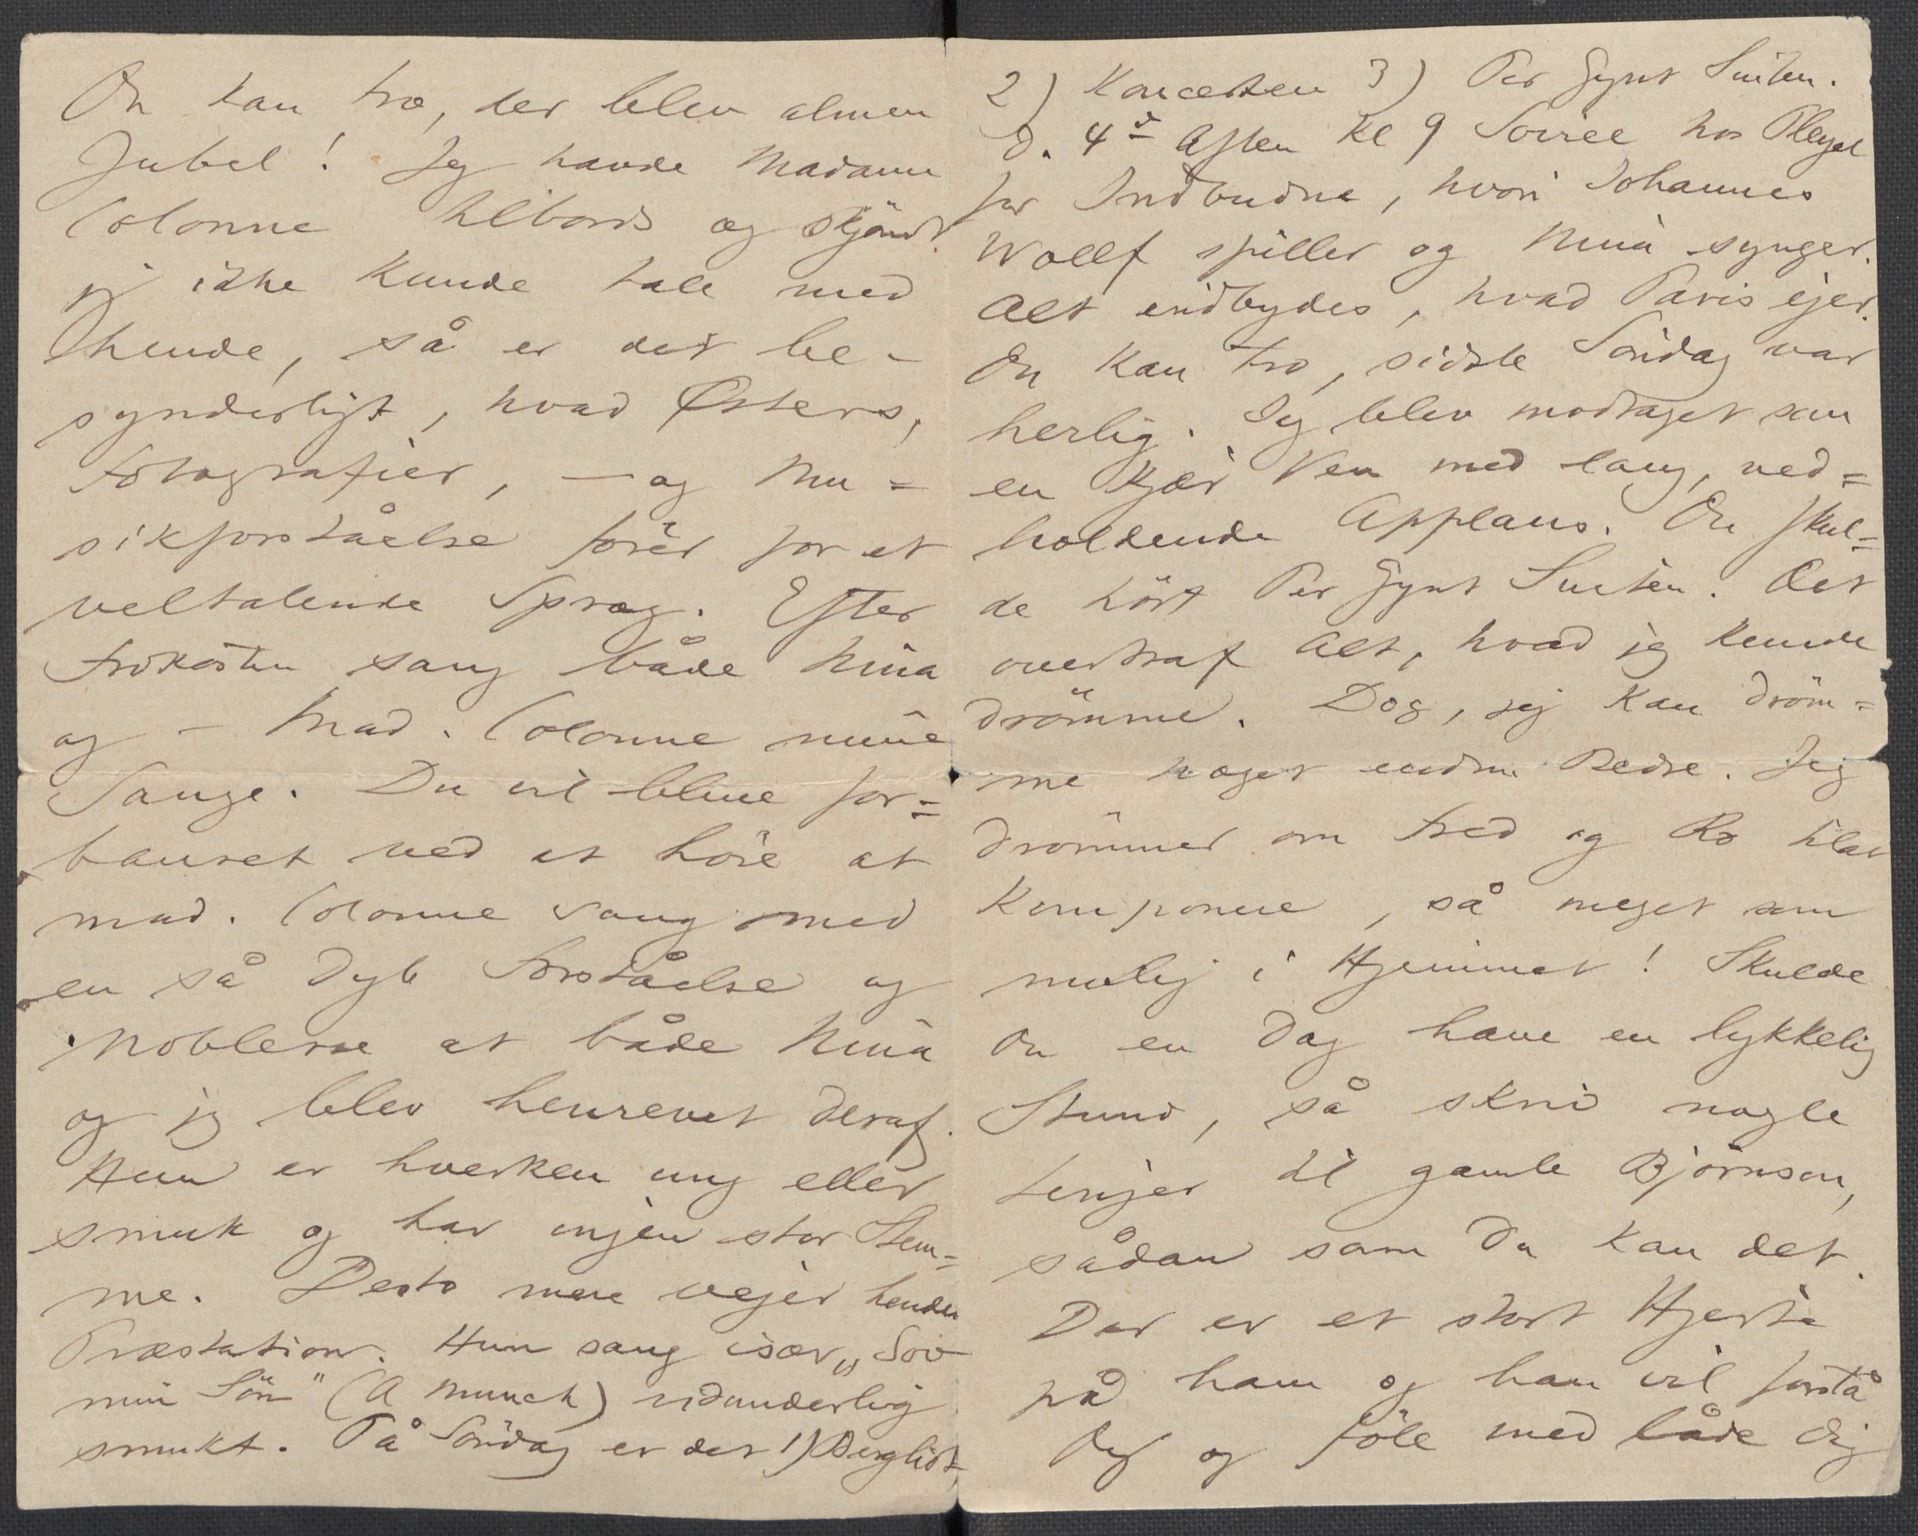 Du kan tro, der blev almen
Jubel! Jeg havde Madame
Colonne tilbords og skjöndt
jeg ikke kunde tale med
hende, så er det be-
synderligt, hvad Østers,
Fotografier, — og Mu=
sikforståelse förer for et
veltalende Sprog. Efter
Frokosten sang både Nina
og - Mad. Colonne mine
Sange. Du vil blive for=
bauset ved at höre at
Mad. Colonne sang med
en så dyb Forståelse og
Noblesse at både Nina
og jeg blev henrevet deraf.
Hun er hverken ung eller
smuk og har ingen stor Stem=
me. Desto mere vejer hendes
Præstation. Hun sang især „Sov
min Sön" (A Munch) vidunderlig
smukt. På Söndag er det 1) Bergliot,
2) Koncerten 3) Per Gynt Suiten.
D. 4de Aften Kl 9 Soirée hos Pleyel
for Indbudne, hvori Johannes
Wollf spiller og Nina synger.
Alt indbydes, hvad Paris ejer.
Du kan tro, sidste Söndag var
herlig. Jeg blev modtaget som
en kjær Ven med lang, ved=
holdende Applaus. Du skul=
de hört Per Gynt Suiten. Det
overtraf Alt, hvad jeg kunde
drömme. Dog, jeg kan dröm=
me noget endnu Bedre. Jeg
drömmer om Fred og Ro til at
komponere, så meget som
mulig i Hjemmet! Skulde
Du en Dag have en lykkelig
Stund, så skriv nogle
Linjer til gamle Björnson,
sådan som Du kan det.
Der er et stort Hjerte
på ham og han vil forstå
Dig og föle med både Dig